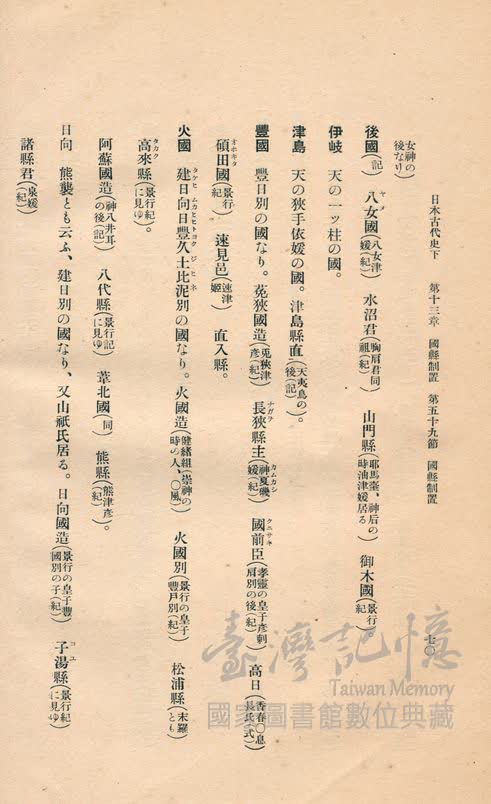 日本古代史下　第十三章　國縣制置　第五十九節　國縣制置
七〇
女神の後なり)
後國(記)　八女國(八女津媛(紀))　水沼君(胸肩君同祖(紀))　山門縣(耶馬臺、神后の時油津媛居る)　御木國(景行紀)
伊岐　天の一ツ柱の國。
津島　天の狹手依媛の國。津島縣直(天夷鳥の後(記))。
豐國　豐日別の國なり。菟狹國造(菟狹津彥(紀))　長狹縣主(神夏磯媛(紀))　國前臣(孝靈の皇子彥刺肩別の後(紀))　高日(香春〇息長氏(式))
碩田國(景行紀)　速見邑(速津姬)　直入縣。
火國　建日向日豐久土比泥別の國なり。火國造(健緒組(崇神の時の人、〇風)　火國別(景行の皇子豐戸別(紀))　松浦縣(末羅とも)
高來縣(景行紀に見ゆ)。
阿蘇國造(神八井耳の後(記))　八代縣(景行記に見ゆ)　葦北國(同)　熊縣(熊津彥(紀))。
日向　熊襲とも云ふ、建日別の國なり、又山祇氏居る。日向國造(景行の皇子豐國別の子(紀))　子湯縣(景行紀に見ゆ)
諸縣君(泉媛(紀))
臺灣記憶
Taiwan Memory
國家圖書館數位典藏